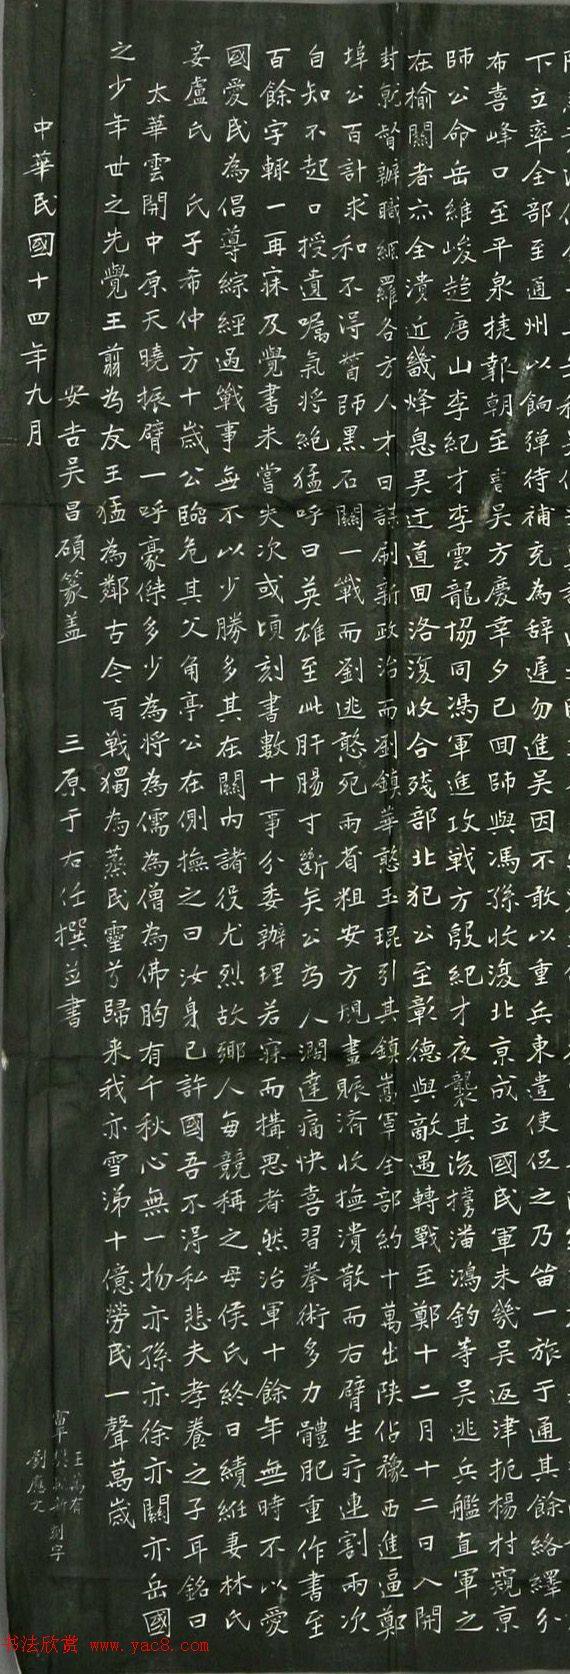 下立率全部至通州以餉彈待補充為辭遲勿進吳因不敢以重兵東遣使促之乃留一旅于通其餘絡繹分
布喜峰口至平泉捷報朝至吳方慶幸夕已回師與馮孫收復北京成立國民軍未幾吳返津扼楊村窺京
師公命岳維峻趋唐山李紀才李雲龍協同馮軍進攻戰方殷紀才夜襲其後擄潘鴻鈞等吳逃兵艦直軍之
在榆關者亦全潰近畿烽息吳迂道回洛復收合殘部北犯公至彰德與敵遇轉戰至鄭十二月十二日入開
封就督辦職網羅各方人才日謀刷新政治而劉鎮華憨玉琨引其鎮嵩軍全部約十萬出陝佔豫西進逼鄭
埠公百計求和不得誓師黑石關一戰而劉逃憨死兩省粗安方規畫賑濟收撫潰散而右臂生疔連割兩次
自知不起口授遺囑氣將絕猛呼曰英雄至此肝腸寸斷矣公為人濶達痛快喜習拳術多力體肥重作書至
百餘字輒一再寐及覺書未嘗失次或頃刻書數十事分委辦理若寐而搆思者然治軍十餘年無時不以愛
國愛民為倡導綜經過戰事無不以少勝多其在關內諸役尤烈故鄉人每競稱之母侯氏終日績紝妻林氏
妾盧氏 氏子希仲方十歲公臨危其父角亭公在側撫之曰汝身已許國吾不得私悲夫孝養之子耳銘曰
太華雲開中原天曉振臂一呼豪傑多少為將為儒為僧為佛胸有千秋心無一物亦孫亦徐亦關亦岳國
之少年世之先覺王翦為友王猛為鄰古今百戰獨為蒸民靈兮歸来我亦雪涕十億勞民一聲萬歲
安吉吳昌碩篆蓋 三原于右任撰並書
中華民國十四年九月
王萬有
富平 刻字
劉應文
书法欣赏 www.yac8.com